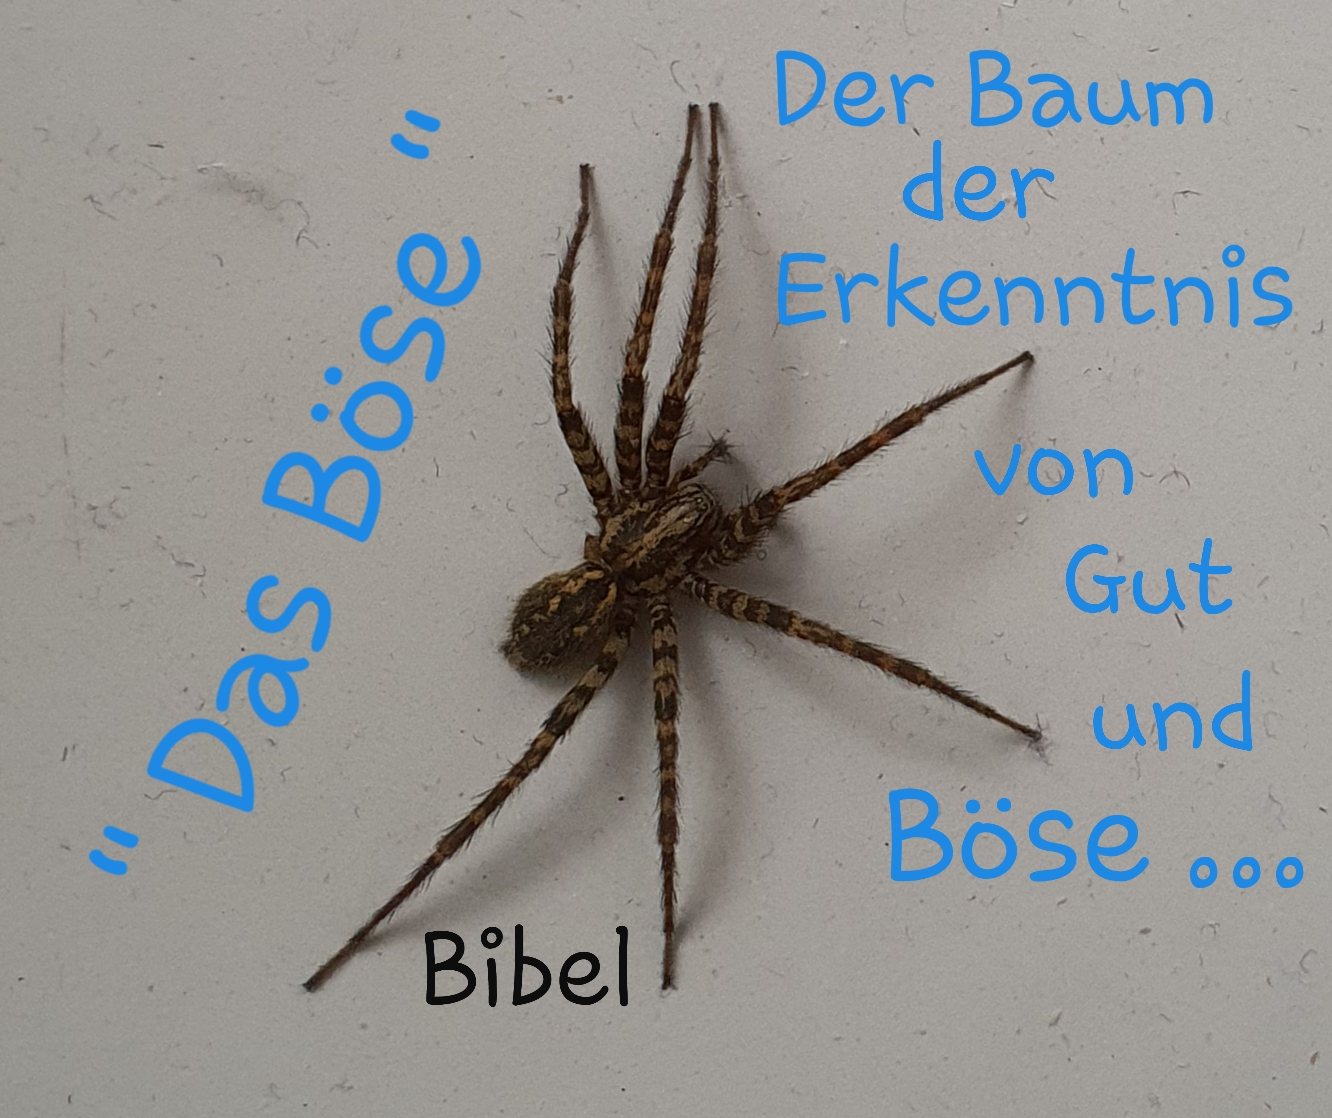 " Das Böse "
Der Baum
der
Erkenntnis
von
Gut
und
Böse ...
Bibel